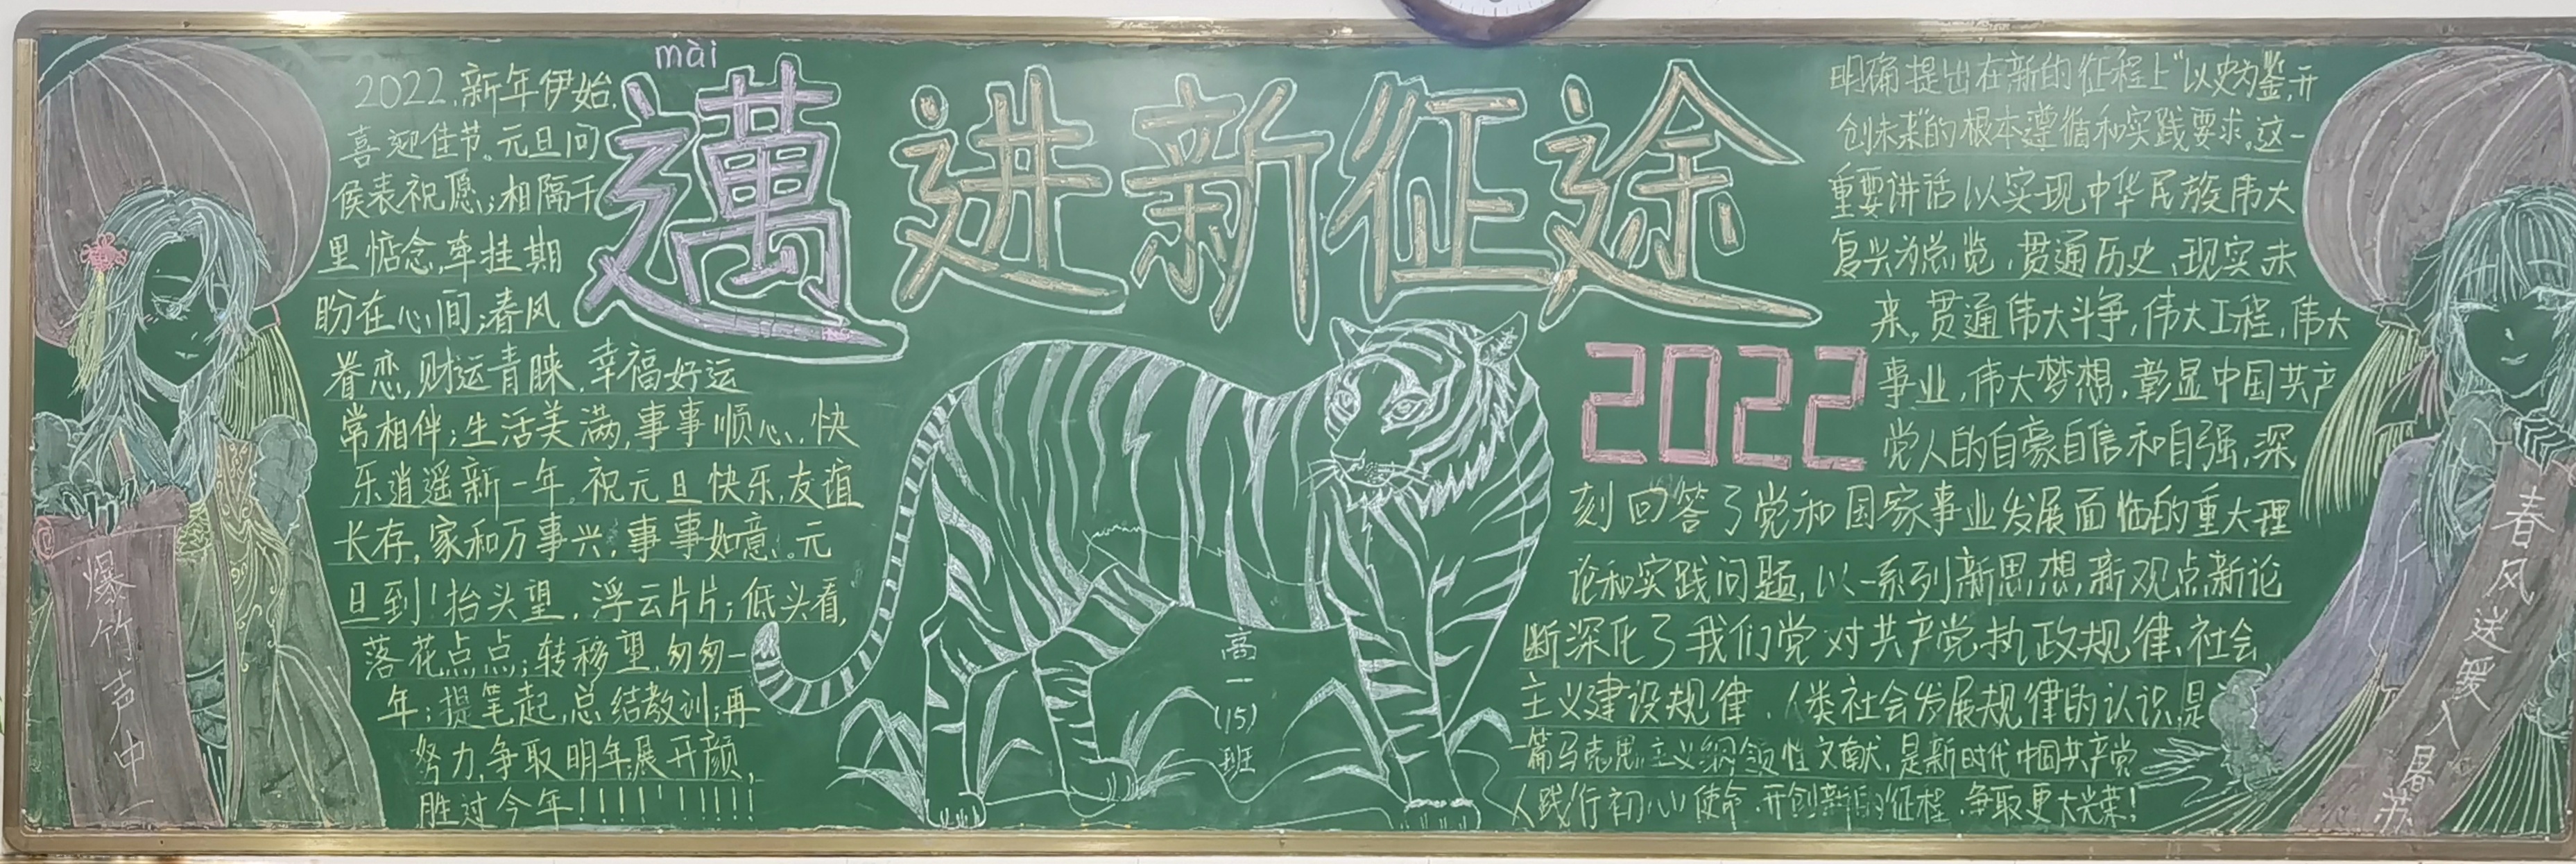 mài
邁进新征途
2022
2022,新年伊始,
喜迎佳节。元旦问
侯表祝愿,相隔千
里惦念,牵挂期
盼在心间;春风
眷恋,财运青睐,幸福好运
常相伴;生活美满,事事顺心,快
乐逍遥新一年。祝元旦快乐,友谊
长存,家和万事兴,事事如意。元
旦到!抬头望,浮云片片;低头看,
落花点点;转移望,匆匆一
年;提笔起,总结教训;再
努力,争取明年展开颜,
胜过今年!!!!!!!!!!
明确提出在新的征程上“以史为鉴,开
创未来”的根本遵循和实践要求。这一
重要讲话以实现中华民族伟大
复兴为总览,贯通历史、现实未
来,贯通伟大斗争,伟大工程,伟大
事业,伟大梦想,彰显中国共产
党人的自豪自信和自强,深
刻回答了党和国家事业发展面临的重大理
论和实践问题,以一系列新思想,新观点新论
断深化了我们党对共产党执政规律、社会
主义建设规律、人类社会发展规律的认识,是
一篇马克思主义纲领性文献,是新时代中国共产党
人践行初心使命,开创新的征程,争取更大光荣!
爆竹声中一
春风送暖入屠苏
高一(15)班